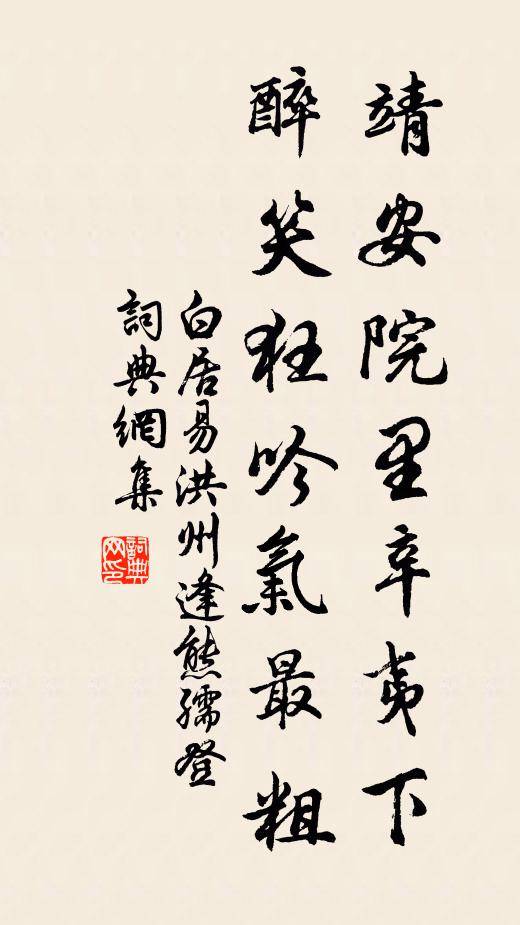 靖安院里辛夷下
醉笑狂吟氣最粗
白居易洪州逢熊孺登
詞典網集
詞典网印